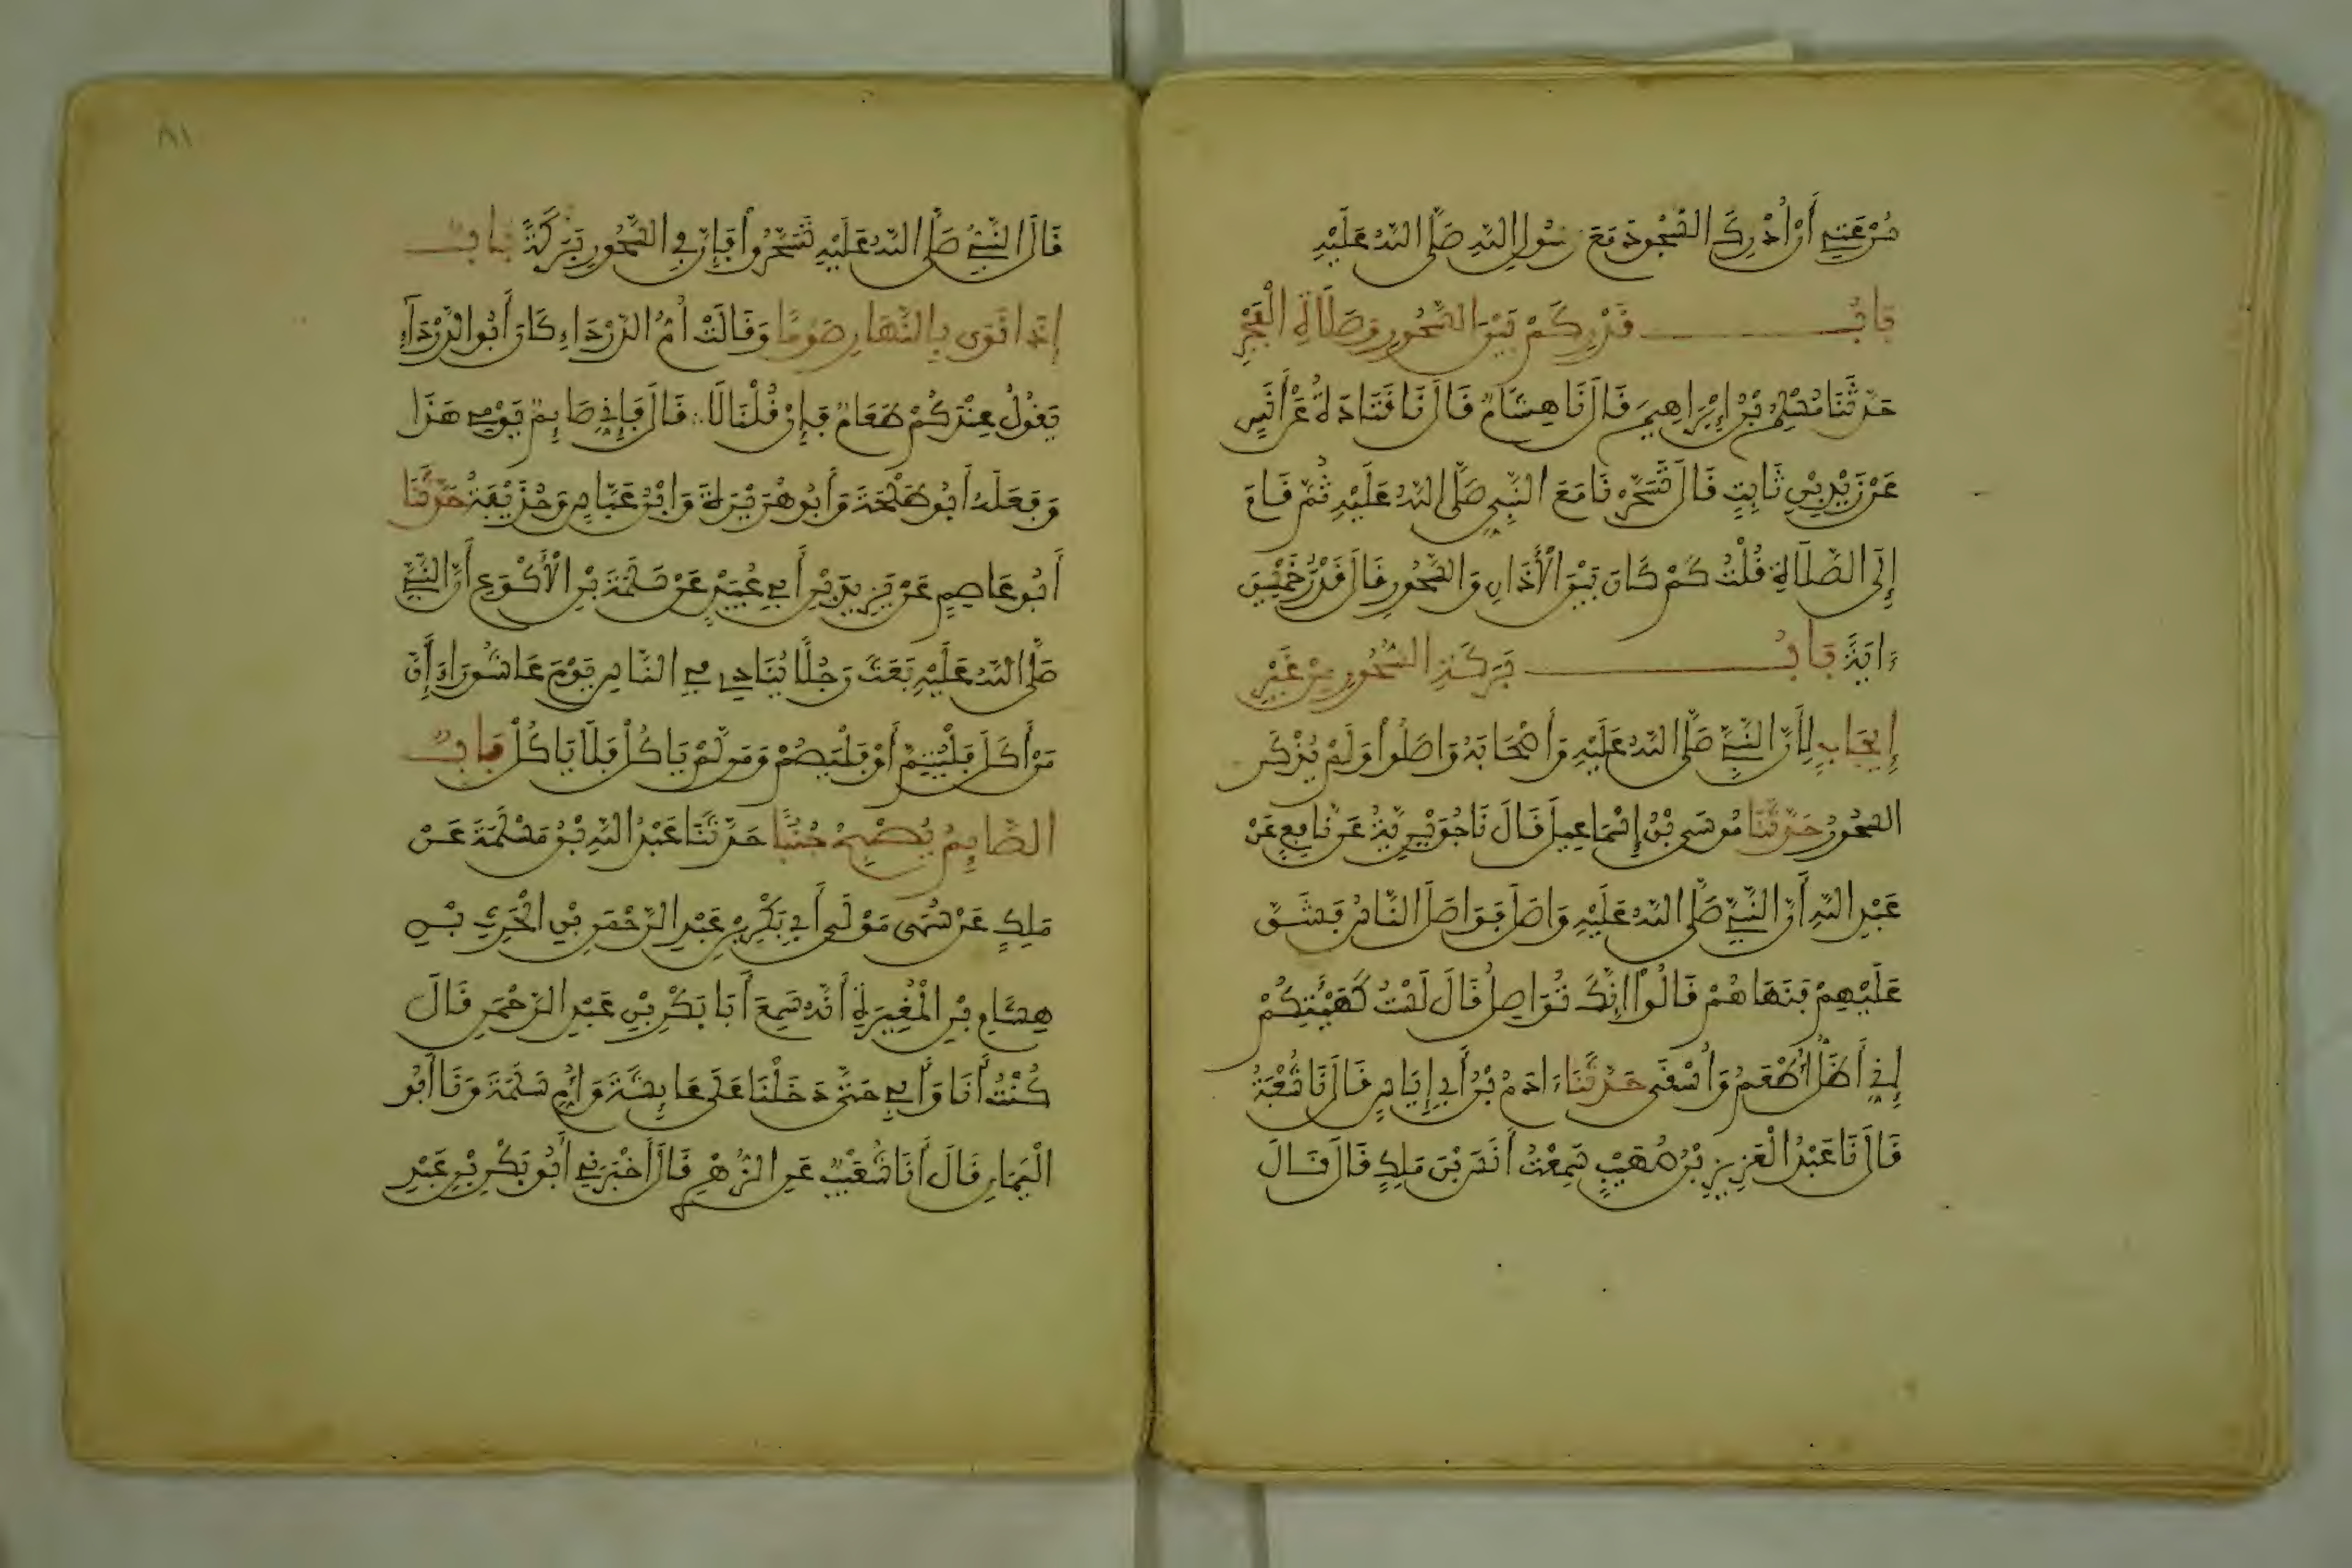 سُرْعَتِي أَنْ أُدْرِكَ السُّجُودَ مَعَ رَسُولِ اللَّهِ صَلَّى اللَّهُ عَلَيْهِ
بَابُ قَدْرِ كَمْ بَيْنَ السُّحُورِ وَصَلَاةِ الْفَجْرِ
حَدَّثَنَا مُسْلِمُ بْنُ إِبْرَاهِيمَ قَالَ نَا هِشَامٌ قَالَ نَا قَتَادَةُ عَنْ أَنَسٍ
عَنْ زَيْدِ بْنِ ثَابِتٍ قَالَ تَسَحَّرْنَا مَعَ النَّبِيِّ صَلَّى اللَّهُ عَلَيْهِ ثُمَّ قَامَ
إِلَى الصَّلَاةِ قُلْتُ كَمْ كَانَ بَيْنَ الْأَذَانِ وَالسُّحُورِ قَالَ قَدْرُ خَمْسِينَ
ءَايَةً بَابُ بَرَكَةِ السُّحُورِ مِنْ غَيْرِ
إِيجَابٍ لِأَنَّ النَّبِيَّ صَلَّى اللَّهُ عَلَيْهِ وَأَصْحَابَهُ وَاصَلُوا وَلَمْ يُذْكَرِ
السُّحُورُ حَدَّثَنَا مُوسَى بْنُ إِسْمَاعِيلَ قَالَ نَا جُوَيْرِيَةُ عَنْ نَافِعٍ عَنْ
عَبْدِ اللَّهِ أَنَّ النَّبِيَّ صَلَّى اللَّهُ عَلَيْهِ وَاصَلَ فَوَاصَلَ النَّاسُ فَشَقَّ
عَلَيْهِمْ فَنَهَاهُمْ قَالُوا إِنَّكَ تُوَاصِلُ قَالَ لَسْتُ كَهَيْئَتِكُمْ
إِنِّي أَظَلُّ أُطْعَمُ وَأُسْقَى حَدَّثَنَا ءَادَمُ بْنُ أَبِي إِيَاسٍ قَالَ نَا شُعْبَةُ
قَالَ نَا عَبْدُ الْعَزِيزِ بْنُ صُهَيْبٍ سَمِعْتُ أَنَسَ بْنَ مَلِكٍ قَالَ قَالَ
٨١
قَالَ النَّبِيُّ صَلَّى اللَّهُ عَلَيْهِ تَسَحَّرُوا فَإِنَّ فِي السُّحُورِ بَرَكَةً بَابٌ
إِذَا نَوَى بِالنَّهَارِ صَوْمًا وَقَالَتْ أُمُّ الدَّرْدَاءِ كَانَ أَبُو الدَّرْدَاءِ
يَقُولُ عِنْدَكُمْ طَعَامٌ فَإِنْ قُلْنَا لَا قَالَ فَإِنِّي صَايِمٌ يَوْمِي هَذَا
وَفَعَلَهُ أَبُو طَلْحَةَ وَأَبُو هُرَيْرَةَ وَابْنُ عَبَّاسٍ وَحُذَيْفَةُ حَدَّثَنَا
أَبُو عَاصِمٍ عَنْ يَزِيدَ بْنِ أَبِي عُبَيْدٍ عَنْ سَلَمَةَ بْنِ الْأَكْوَعِ أَنَّ النَّبِيَّ
صَلَّى اللَّهُ عَلَيْهِ بَعَثَ رَجُلًا يُنَادِي فِي النَّاسِ يَوْمَ عَاشُورَاءَ إِنَّ
مَنْ أَكَلَ فَلْيُتِمَّ أَوْ فَلْيَصُمْ وَمَنْ لَمْ يَاكُلْ فَلَا يَاكُلْ بَابٌ
الصَّايِمُ يُصْبِحُ جُنُبًا حَدَّثَنَا عَبْدُ اللَّهِ بْنُ مَسْلَمَةَ عَنْ
مَلِكٍ عَنْ سُمَيٍّ مَوْلَى أَبِي بَكْرِ بْنِ عَبْدِ الرَّحْمَنِ بْنِ الْحَرِثِ بْنِ
هِشَامِ بْنِ الْمُغِيرَةِ أَنَّهُ سَمِعَ أَبَا بَكْرِ بْنِ عَبْدِ الرَّحْمَنِ قَالَ
كُنْتُ أَنَا وَأَبِي حَتَّى دَخَلْنَا عَلَى عَايِشَةَ وَأُمِّ سَلَمَةَ وَنَا أَبُو
الْيَمَانِ قَالَ أَنَا شُعَيْبٌ عَنِ الزُّهْرِيِّ قَالَ أَخْبَرَنِي أَبُو بَكْرِ بْنِ عَبْدِ